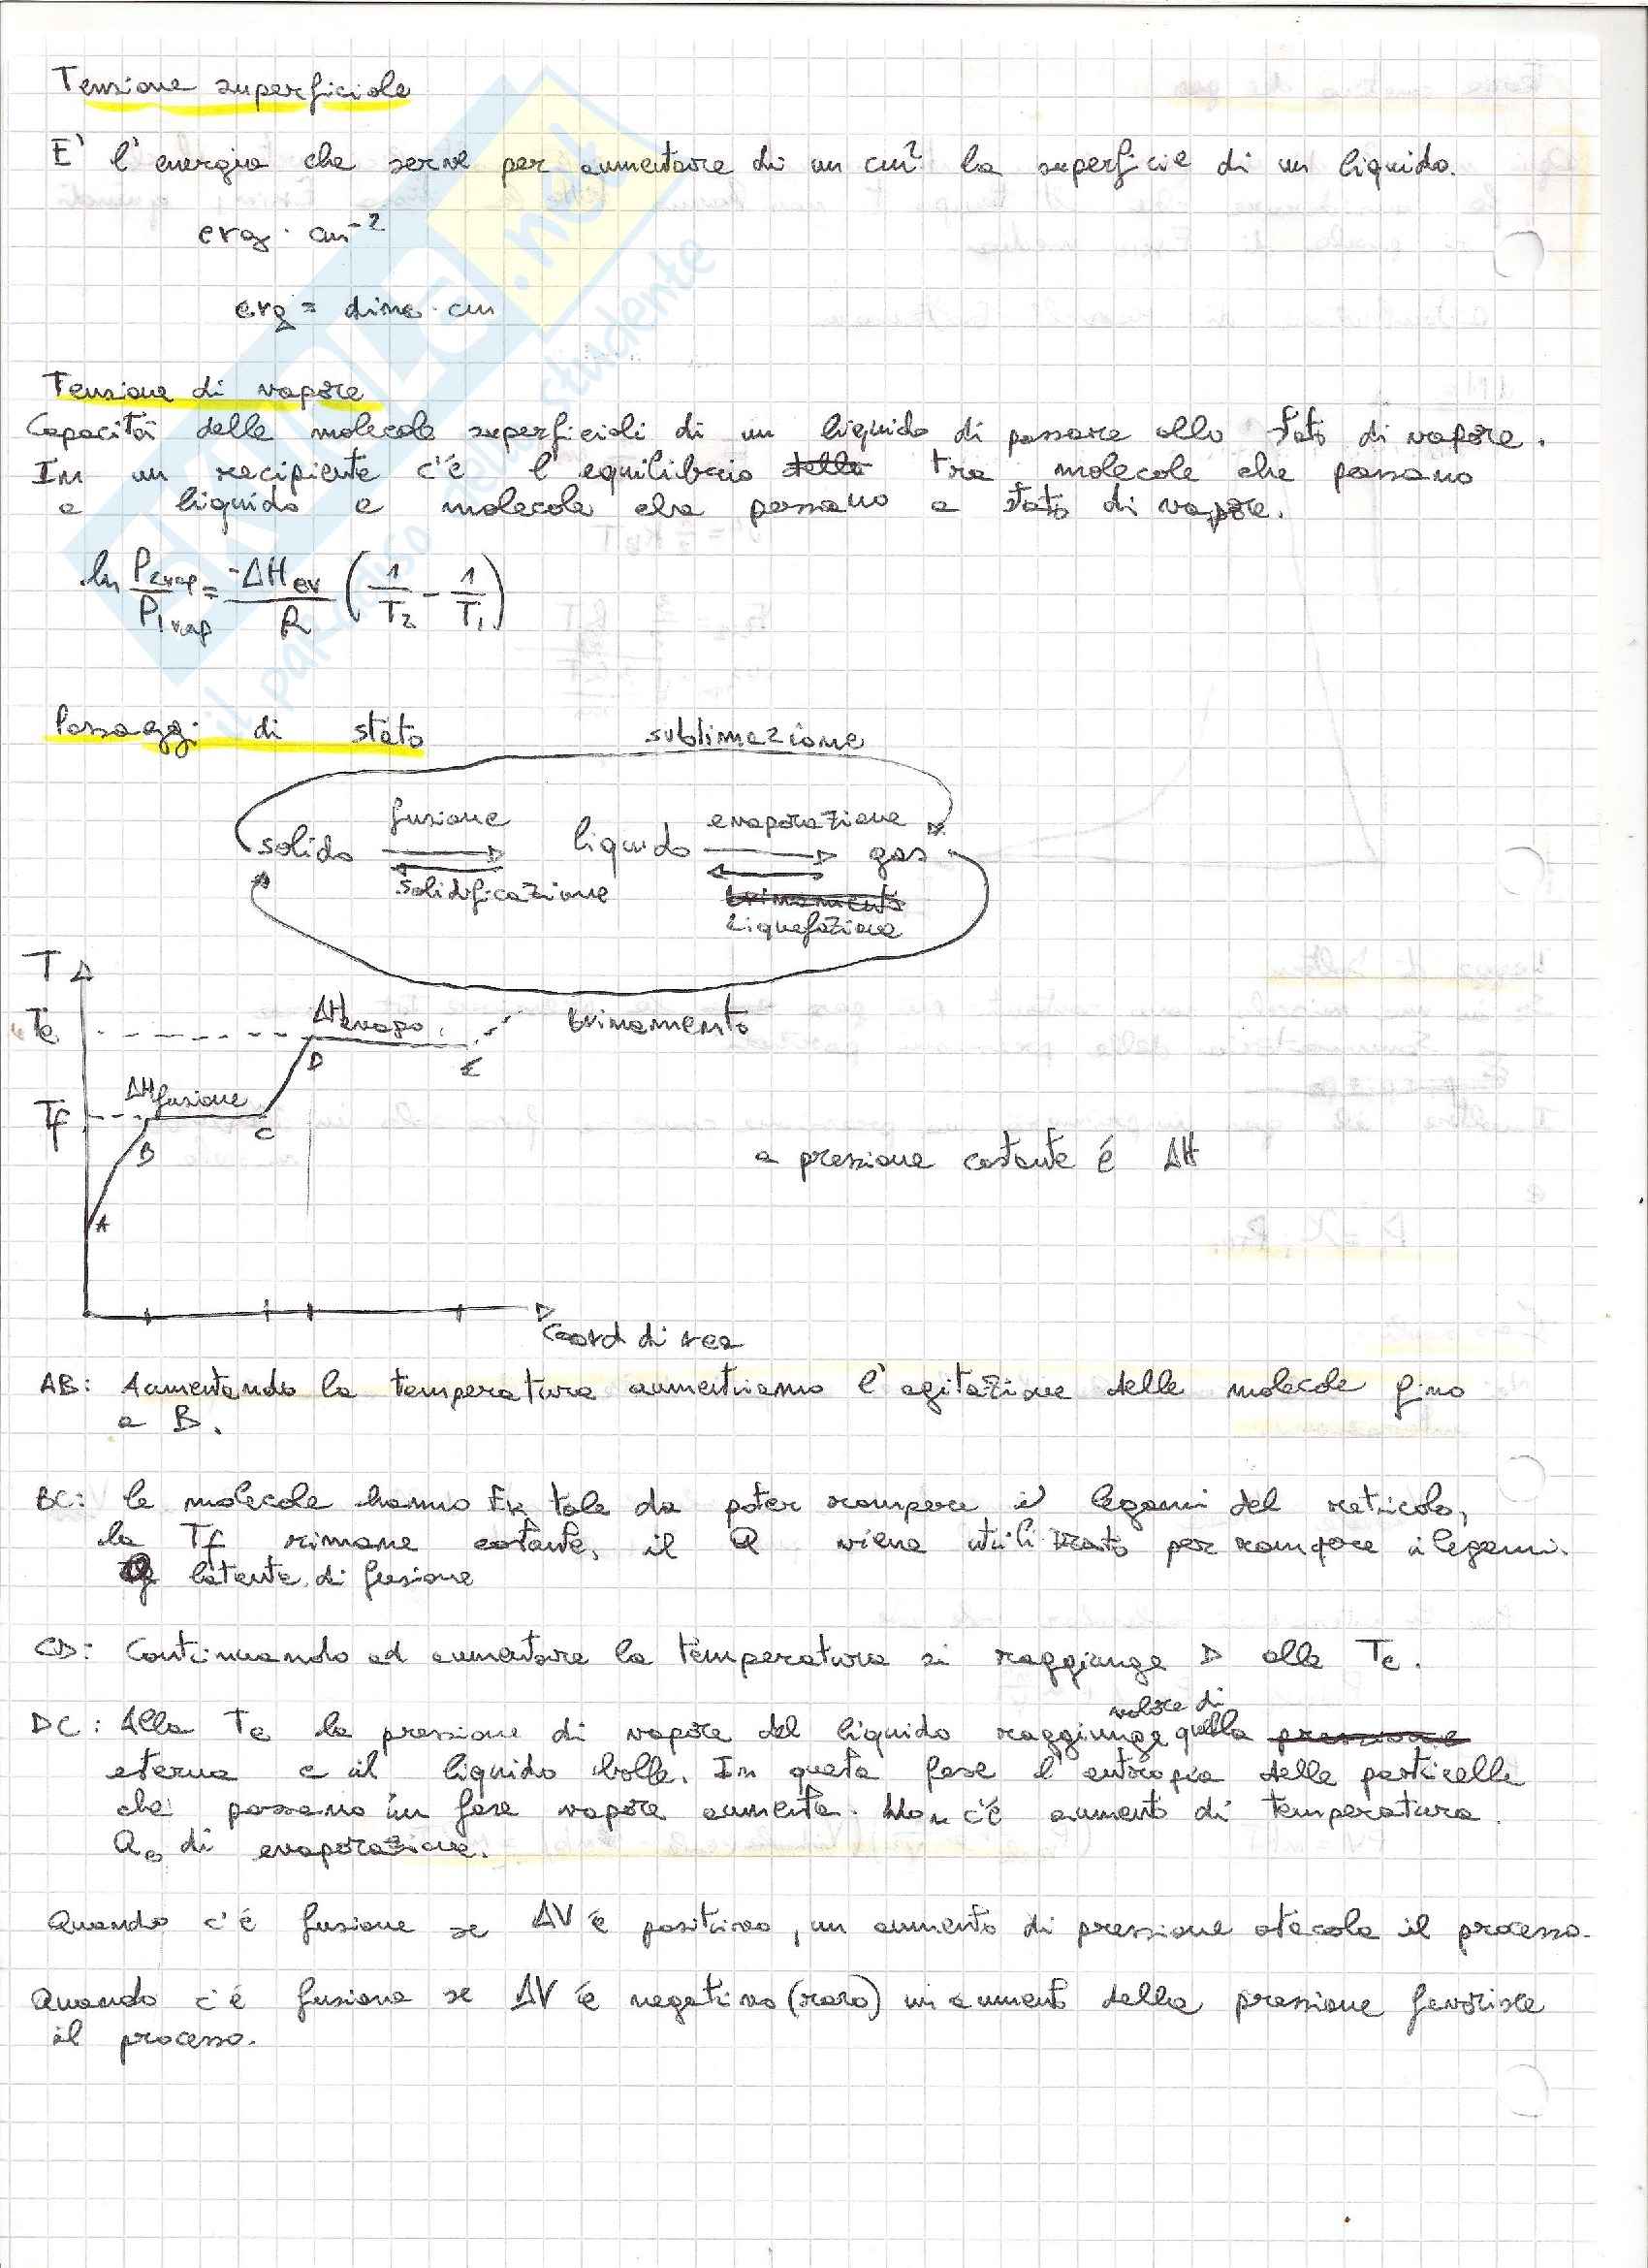 Tensione superficiale
E' l'energia che serve per aumentare di un cm² la superficie di un liquido.
erg · cm⁻²
erg = dina · cm
Tensione di vapore
Capacità delle molecole superficiali di un liquido di passare allo stato di vapore.
In un recipiente c'è l'equilibrio della tra molecole che passano
a liquido e molecole che passano a stato di vapore.
ln P₂vap/P₁vap = -ΔHev/R (1/T₂ - 1/T₁)
Passaggi di stato
sublimazione
fusione
evaporazione
solido
liquido
gas
solidificazione
brinamento
liquefazione
T
Te
ΔHevapo.
brinamento
D
E
ΔHfusione
Tf
B
C
a pressione costante è ΔH
A
Coord di rea
AB: Aumentando la temperatura aumentiamo l'agitazione delle molecole fino
a B.
BC: le molecole hanno Ek tale da poter rompere i legami del reticolo,
la Tf rimane costante, il Q viene utilizzato per rompere i legami.
Q latente di fusione
CD: Continuando ad aumentare la temperatura si raggiunge D alla Te.
valore di
DC: Alla Te la pressione di vapore del liquido raggiunge quella pressione
esterna e il liquido bolle. In questa fase l'entropia delle particelle
che passano in fase vapore aumenta. Non c'è aumento di temperatura.
Qe di evaporazione.
Quando c'è fusione se ΔV è positivo, un aumento di pressione ostacola il processo.
Quando c'è fusione se ΔV è negativo (raro) un aumento della pressione favorisce
il processo.
.net
il paradiso dello studente